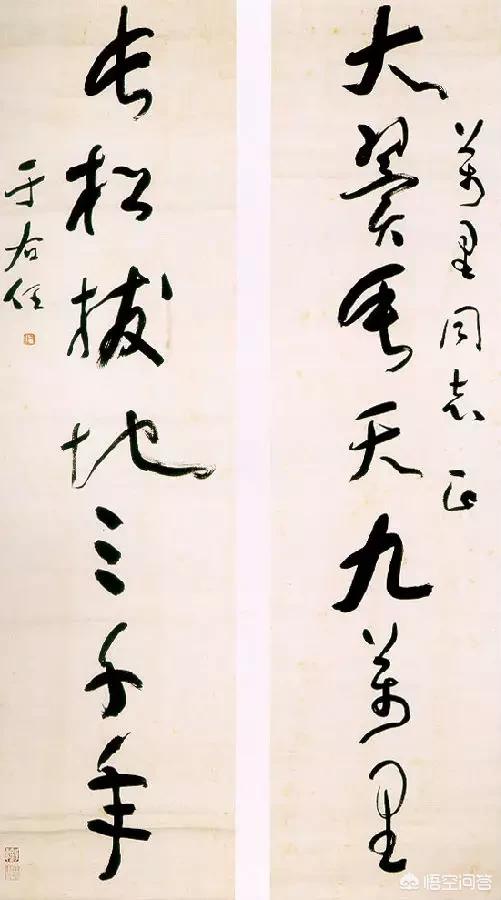 萬里同志正
大翼垂天九萬里
長松拔地三千年
于右任
悟空问答